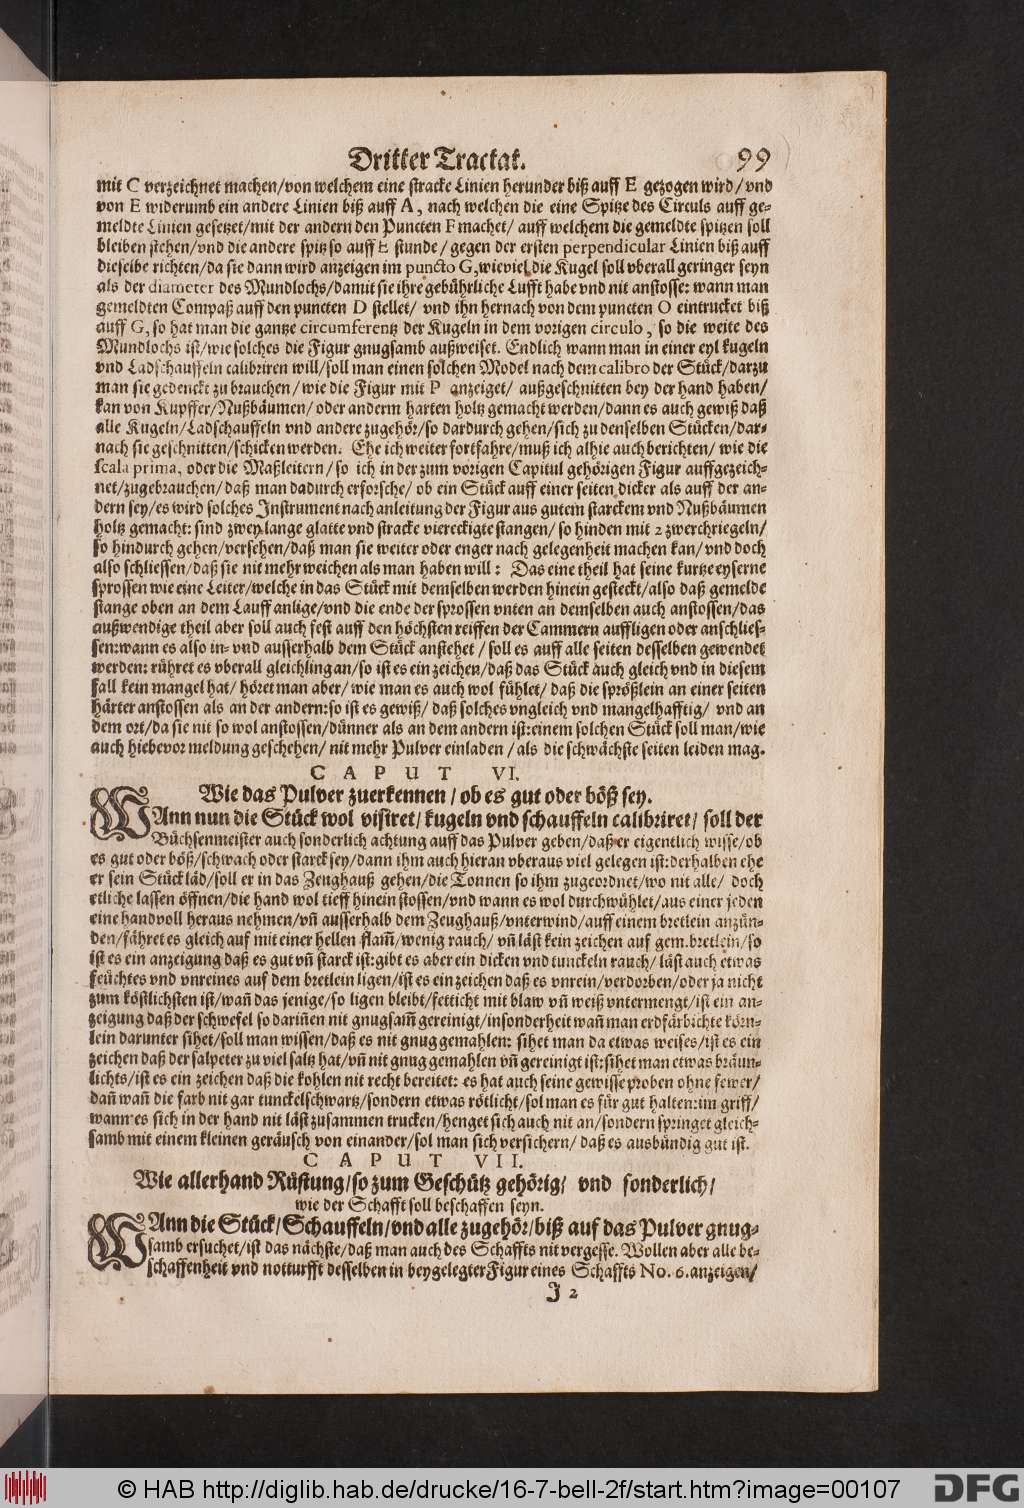 Dritter Tractat. 99
mit C verzeichnet machen/von welchem eine stracke Linien herunder biß auff E gezogen wird/vnd
von E widerumb ein andere Linien biß auff A, nach welchen die eine Spitze des Circuls auff ge-
meldte Linien gesetzet/mit der andern den Puncten F machet/ auff welchem die gemeldte spitzen soll
bleiben stehen/vnd die andere spitz so auff E stunde/ gegen der ersten perpendicular Linien biß auff
dieselbe richten/da sie dann wird anzeigen im puncto G, wieviel die Kugel soll vberall geringer seyn
als der diameter des Mundlochs/damit sie ihre gebührliche Lufft habe vnd nit anstosse: wann man
gemeldten Compaß auff den puncten D stellet/ vnd ihn hernach von dem puncten O eintrucket biß
auff G, so hat man die gantze circumferentz der Kugeln in dem vorigen circulo, so die weite des
Mundlochs ist/wie solches die Figur gnugsamb außweiset. Endlich wann man in einer eyl kugeln
vnd Ladschauffeln calibriren will/soll man einen solchen Model nach dem calibro der Stück/darzu
man sie gedenckt zu brauchen/wie die Figur mit P anzeiget/ außgeschnitten bey der hand haben/
kan von Kupffer/Nußbäumen/oder anderm harten holtz gemacht werden/dann es auch gewiß daß
alle Kugeln/Ladschauffeln vnd andere zugehör/so dardurch gehen/sich zu denselben Stücken/dar-
nach sie geschnitten/schicken werden. Ehe ich weiter fortfahre/muß ich alhie auch berichten/ wie die
scala prima, oder die Maßleitern/so ich in der zum vorigen Capitul gehörigen Figur auffgezeich-
net/zugebrauchen/daß man dadurch erforsche/ ob ein Stück auff einer seiten dicker als auff der an-
dern sey/es wird solches Instrument nach anleitung der Figur aus gutem starckem vnd Nußbäumen
holtz gemacht: sind zwey lange glatte vnd stracke viereckigte stangen/ so hinden mit 2 zwerchriegeln/
so hindurch gehen/versehen/daß man sie weiter oder enger nach gelegenheit machen kan/vnd doch
also schliessen/daß sie nit mehr weichen als man haben will: Das eine theil hat seine kurtze eyserne
sprossen wie eine Leiter/welche in das Stück mit demselben werden hinein gesteckt/also daß gemelde
stange oben an dem Lauff anlige/vnd die ende der sprossen vnten an demselben auch anstossen/das
außwendige theil aber soll auch fest auff den höchsten reiffen der Cammern auffligen oder anschlies-
sen:wann es also in- vnd ausserhalb dem Stück anstehet/ soll es auff alle seiten desselben gewendet
werden: rühret es vberall gleichling an/so ist es ein zeichen/daß das Stück auch gleich vnd in diesem
fall kein mangel hat/ höret man aber/ wie man es auch wol fühlet/ daß die sprößlein an einer seiten
härter anstossen als an der andern:so ist es gewiß/ daß solches vngleich vnd mangelhafftig/ vnd an
dem ort/da sie nit so wol anstossen/dünner als an dem andern ist:einem solchen Stück soll man/wie
auch hiebevor meldung geschehen/ nit mehr Pulver einladen/als die schwächste seiten leiden mag.
CAPUT VI.
Wie das Pulver zuerkennen/ob es gut oder böß sey.
WAnn nun die Stück wol visiret/kugeln vnd schauffeln calibriret/ soll der
Büchsenmeister auch sonderlich achtung auff das Pulver geben/daß er eigentlich wisse/ob
es gut oder böß/schwach oder starck sey/dann ihm auch hieran vberaus viel gelegen ist:derhalben ehe
er sein Stück läd/soll er in das Zeughauß gehen/die Tonnen so ihm zugeordnet/wo nit alle/ doch
etliche lassen öffnen/die hand wol tieff hinein stossen/vnd wann es wol durchwühlet/aus einer jeden
eine handvoll heraus nehmen/vñ ausserhalb dem Zeughauß/vnterwind/auff einem bretlein anzün-
den/fähret es gleich auf mit einer hellen flam̃/wenig rauch/ vñ läst kein zeichen auf gem. bretlein/so
ist es ein anzeigung daß es gut vñ starck ist:gibt es aber ein dicken vnd tunckeln rauch/ läst auch etwas
feuchtes vnd vnreines auf dem bretlein ligen/ist es ein zeichen daß es vnrein/verdorben/oder ja nicht
zum köstlichsten ist/wañ das jenige/so ligen bleibt/fetticht mit blaw vñ weiß vntermengt/ist ein an-
zeigung daß der schwefel so dariñen nit gnugsam̃ gereinigt/insonderheit wañ man erdfärbichte körn-
lein darunter sihet/soll man wissen/daß es nit gnug gemahlen: sihet man da etwas weises/ist es ein
zeichen daß der salpeter zu viel saltz hat/vñ nit gnug gemahlen vñ gereinigt ist:sihet man etwas bräun-
lichts/ist es ein zeichen daß die kohlen nit recht bereitet: es hat auch seine gewisse proben ohne fewer/
dañ wañ die farb nit gar tunckelschwartz/sondern etwas rötlicht/sol man es für gut halten:im griff/
wann es sich in der hand nit läst zusammen trucken/henget sich auch nit an/sondern springet gleich-
samb mit einem kleinen geräusch von einander/sol man sich versichern/ daß es ausbündig gut ist.
CAPUT VII.
Wie allerhand Rüstung/so zum Geschütz gehörig/ vnd sonderlich/
wie der Schafft soll beschaffen seyn.
WAnn die Stück/Schauffeln/vnd alle zugehör/biß auf das Pulver gnug-
samb ersuchet/ist das nächste/daß man auch des Schaffts nit vergesse. Wollen aber alle be-
schaffenheit vnd notturfft desselben in beygelegter Figur eines Schaffts No. 6. anzeigen/
J 2
© HAB http://diglib.hab.de/drucke/16-7-bell-2f/start.htm?image=00107 DFG